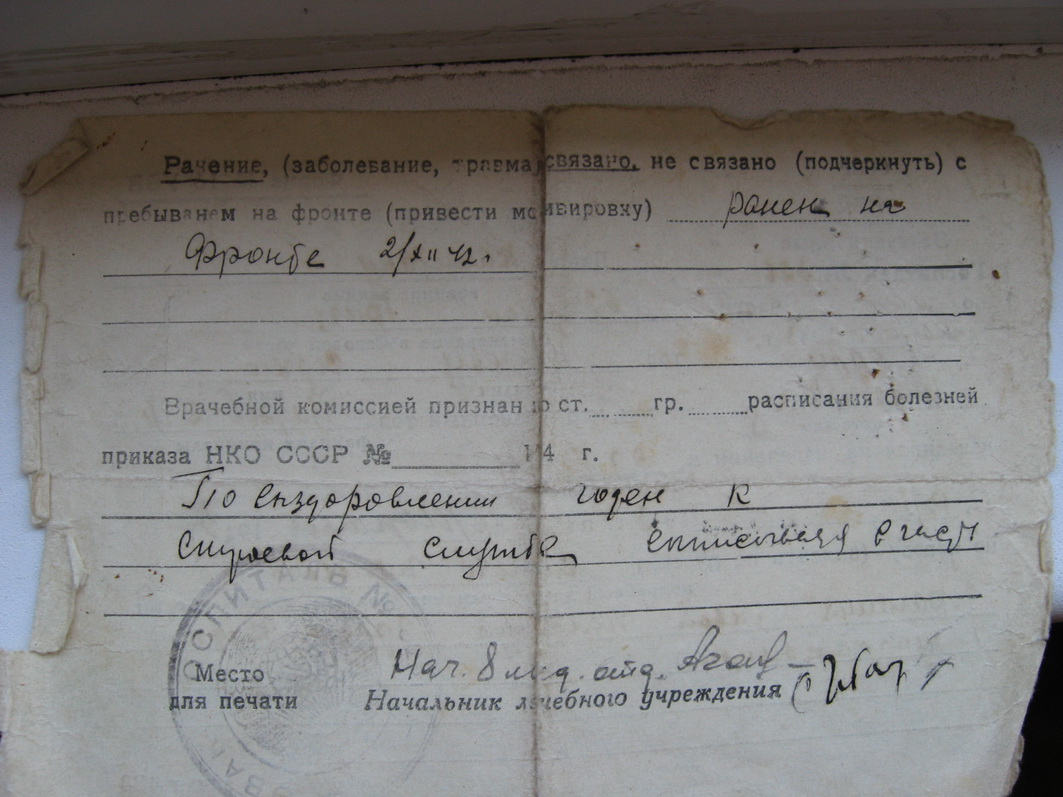 Рачение, (заболевание, травма) связано, не связано (подчеркнуть) с
пребыванем на фронте (привести мотивировку) ранен на
Фронте 2/XII 42г.
Врачебной комиссией признан по ст. гр. расписания болезней
приказа НКО СССР № 194 г.
По выздоровлении годен к
строевой службе выписывается в часть
ГОСПИТАЛЬ №
Нач. 8 мед. отд.
Место
для печати
Начальник лечебного учреждения
ЭВАК